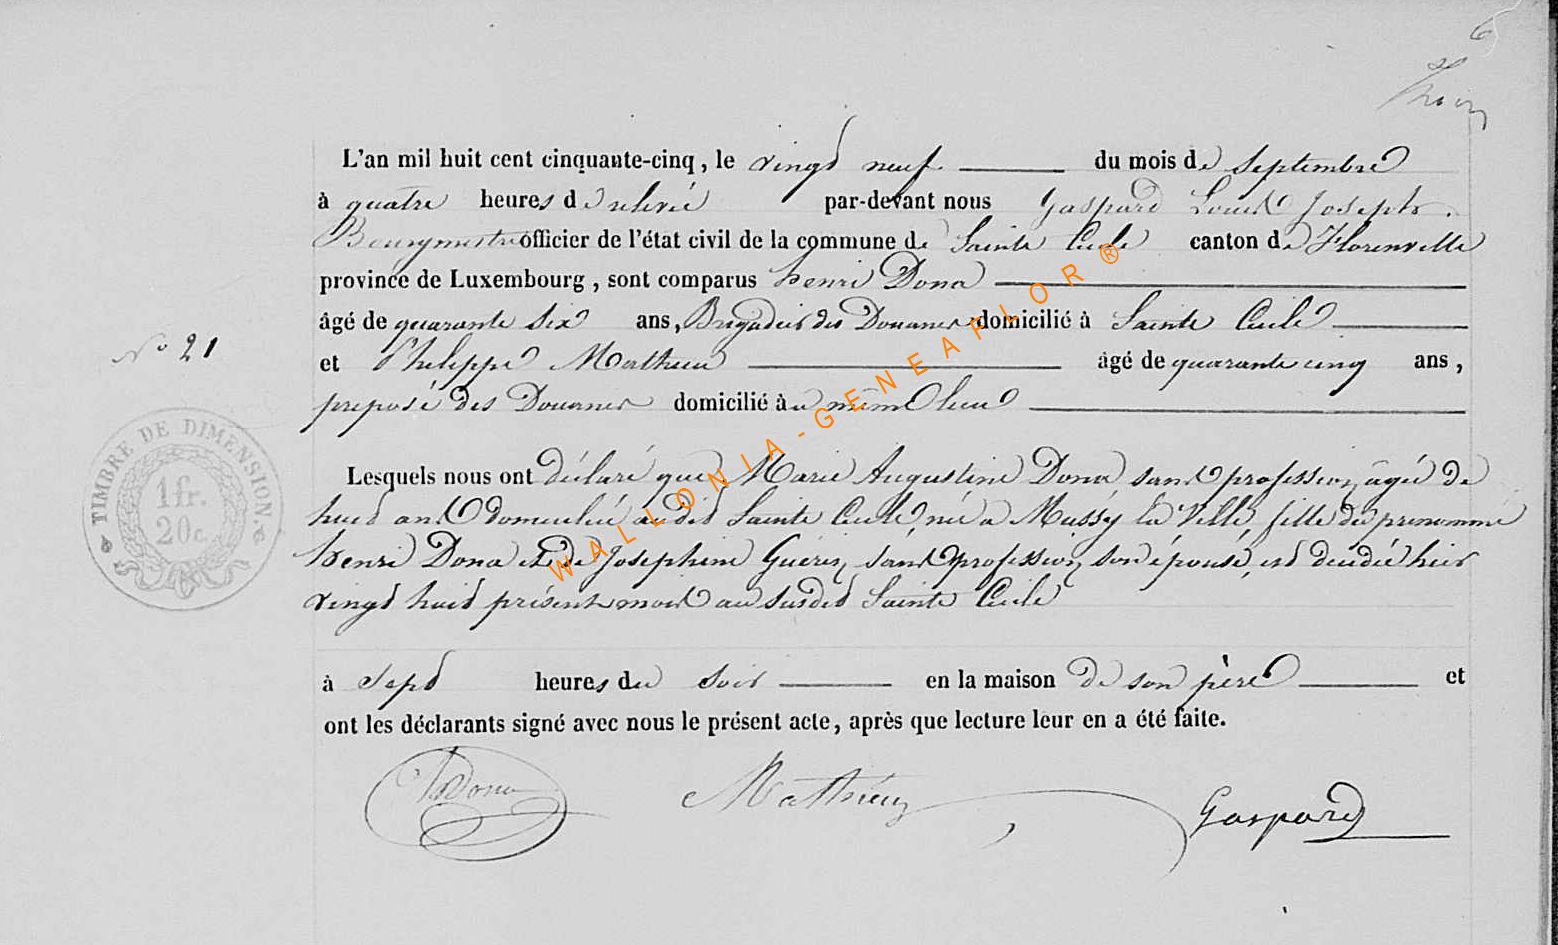 6
L'an mil huit cent cinquante-cinq, le vingt neuf du mois de Septembre
à quatre heures de relevée par-devant nous Gaspard Louis Joseph
Bourgmestre officier de l'état civil de la commune de Sainte Cecile canton de Florenville
province de Luxembourg, sont comparus henri Dona
âgé de quarante six ans, Brigadier des Douanes domicilié à Sainte Cecile
N° 21
et Philippe Mathieu âgé de quarante cinq ans,
préposé des Douanes domicilié au même lieu
TIMBRE DE DIMENSION.
1 fr.
20 c.
Lesquels nous ont déclaré que Marie Augustine Dona sans profession, âgée de
huit ans domiciliée audit Sainte Cecile née a Mussy la Ville, fille du prénommé
henri Dona et de Josephine Guérin sans profession son épouse, est décédée hier
vingt huit présent mois au susdit Sainte Cecile
à Sept heures du Soir en la maison de son père et
ont les déclarants signé avec nous le présent acte, après que lecture leur en a été faite.
Dona Mathieu Gaspard
WALLONIA-GENEAFLOR®